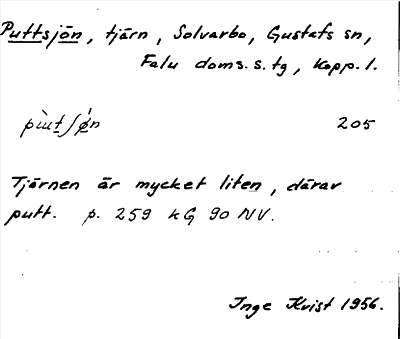 Puttsjön, tjärn, Solvarbo, Gustafs sn,
Falu doms.s.tg, Kopp.l.
205
Tjärnen är mycket liten, därav
putt. p. 259 kG 90 NV.
Inge Kvist 1956.